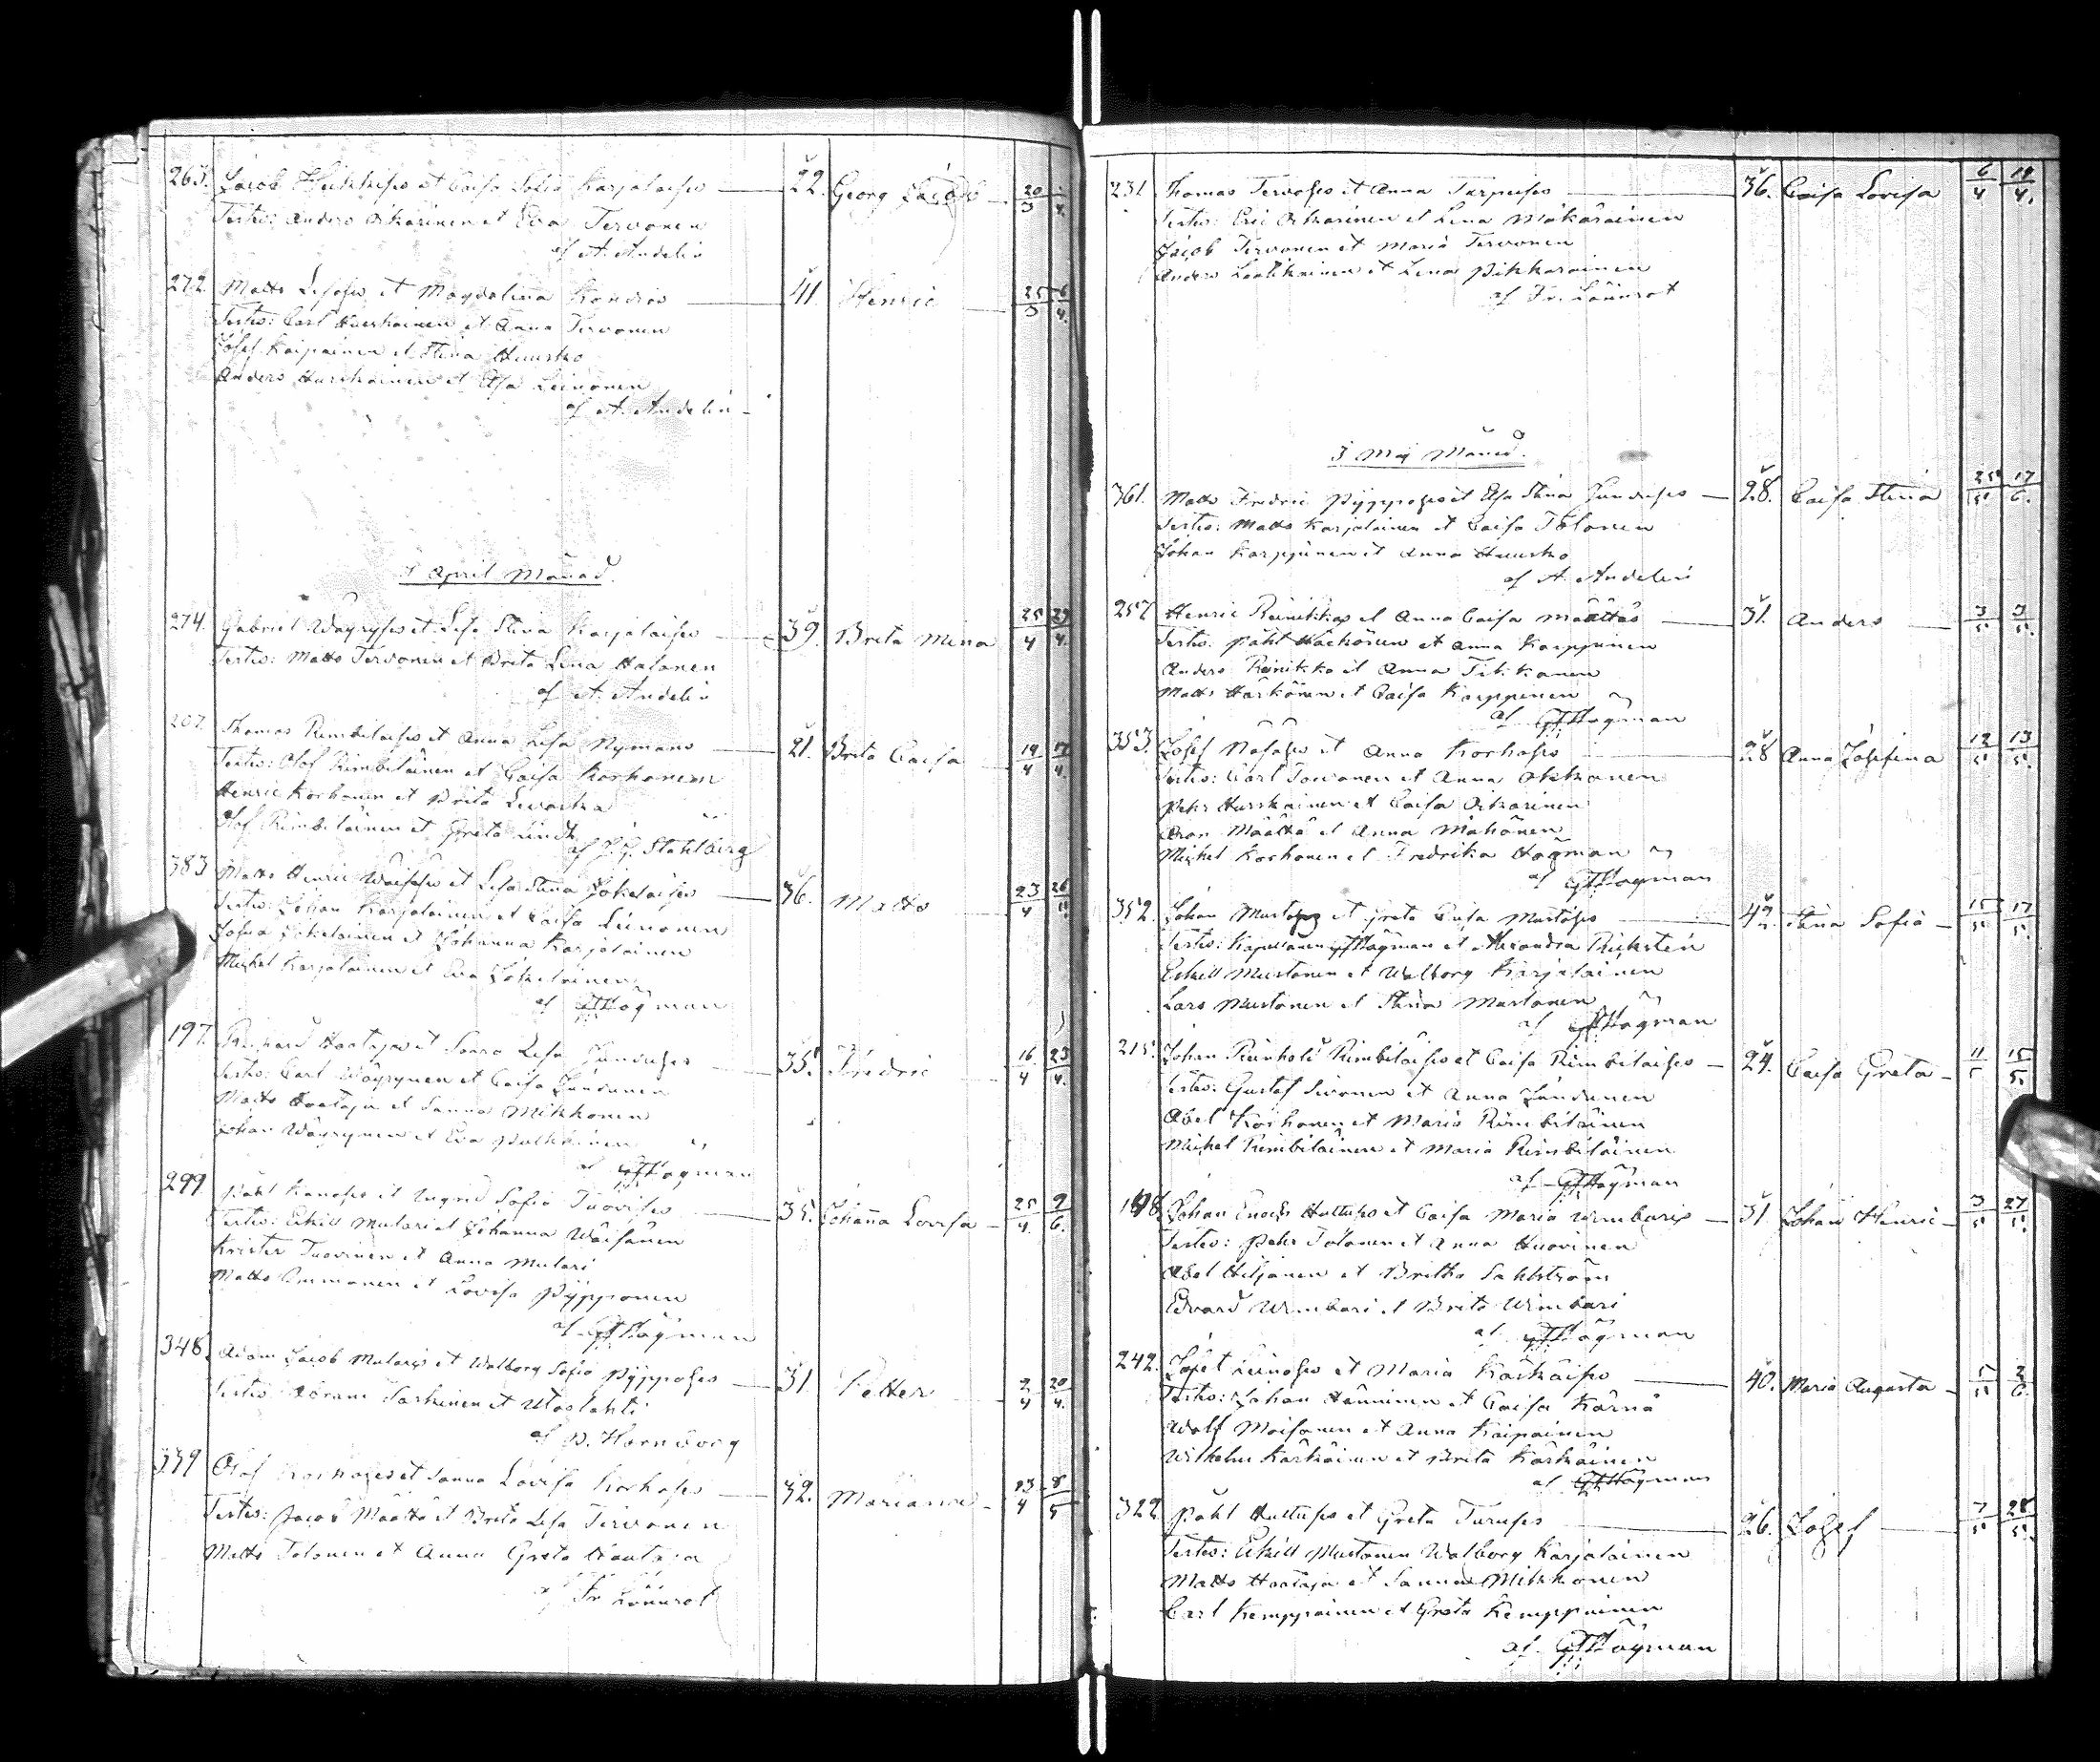 263. Jacob Heikkis et Caisa Sofia Karjalais 22. Georg Jacob 20/3 1/4.
Testes: Anders Oikarinen et Eva Tervonen
af A. Andelin
272. Matts Lesos et Magdalena Kondias 41. Henric 25/3 6/4.
Testes: Carl Huuskainen et Anna Tervonen
Josef Kaipainen et Stina Huusko
Anders Hurskainen et Elsa Leinonen
af A. Andelin
I April Månad.
274. Gabriel Wäyrys et Lisa Stina Karjalais 39. Brita Mina 25/4 29/4.
Testes: Matts Tervonen et Brita Lena Halonen
af A. Andelin
207. Thomas Rimbiläis et Anna Lisa Nymans 21. Brita Caisa 14/4 17/4.
Testes: Olof Rimbiläinen et Caisa Korhonen
Henric Korhonen et Brita
Olof Rimbiläinen et Greta Lindh af J. G. Stahlberg
383 Matts Henric Wäisäs et Lisa Stina Jokelais 36. Matts 23/4 26/5
Testes: Johan Karjalainen et Caisa Leinonen
Josua Jokelainen et Johanna Karjalainen
Michel Karjalainen et Eva Jokelainen
af Hågman
197. Richard Haatajas et Sanna Lisa Jundus 35. Fredric 16/4 23/4.
Testes: Carl Wäyrynen et Caisa Jundunen
Matts Haataja et Sanna Mikkonen
Johan Wäyrynen et Eva Pulkkinen
af Hågman
299. Påhl Kanos et Ingrid Sofia Tuovis 35. Johanna Lovisa 25/4. 9/6.
Testes: Eskill Mulari et Johanna Wäisänen
Krister Tuovinen et Anna Mulari
Matts Ommonen et Lovisa Pyyponen
af Hågman
348. Adam Jacob Mularis et Walborg Sofia Pyypos 31. Petter 2/4 20/4.
Testes: Abram Sarkinen et Utaslahti
af P. Hornborg
339 Olof Korhos et Sanna Lovisa Korhos 32. Marianne 23/4 8/5
Testes: Jacob Määttä et Brita Lisa Tervonen
Matts Tolonen et Anna Greta Haataja
af Fr. Lönnrot
231. Thomas Tervos et Anna Turpeis 36. Caisa Lovisa 6/4 14/4.
Testes: Eric Oikarinen et Lena Mäkäräinen
Jacob Tervonen et Maria Tervonen
Anders Laatikainen et Lena Pikkarainen
af Fr. Lönnrot
I Maj Månad.
361. Matts Fredric Pyypos et Elsa Stina Jundus 28. Caisa Stina 25/5 17/6.
Testes: Matts Karjalainen et Caisa Tolonen
Johan Karppinen et Anna Huusko
af A. Andelin
257 Henric Reinikkas et Anna Caisa Määttäs 31. Anders 3/5 9/5.
Testes: Påhl Härkönen et Anna Karppinen
Anders Reinikka et Anna Tikkanen
Matts Härkönen et Caisa Karppinen
af Hågman
353. Josef Nasas et Anna Korhos 28 Anna Josefina 12/5 13/5.
Testes: Carl Sarvanen et Anna Okkonen
Pehr Hurskainen et Caisa Oikarinen
Aron Määttä et Anna Mähönen
Michel Korhonen et Fredrika Hagman
af Hagman
352. Johan Mustos et Greta Caisa Mustos 42. Stina Sofia 15/5 17/5.
Testes: Kapellanen Hågman et Alexandra Rickstén
Eskill Mustonen et Walborg Karjalainen
Lars Mustonen et Stina Mustonen
af Hågman
215. Johan Reinhold Rimbiläis et Caisa Rimbiläis 24. Caisa Greta 11/5 15/5.
Testes: Gustaf Sivonen et Anna Jundunen
Abel Korhonen et Maria Rimbiläinen
Michel Rimbiläinen et Maria Rimbiläinen
af Hågman
198. Johan Enoch Huttus et Caisa Maria Wimbaris 31. Johan Henric 3/5 27/5.
Testes: Pehr Tolonen et Anna Huovinen
Abel Kiljanen et Britha Sahlström
Edvard Wimbari et Brita Wimbari
af Hågman
242. Jafet Leinos et Maria Kärkäis 40. Maria Augusta 5/5 2/6.
Testes: Johan Hänninen et Caisa Kärnä
Wolf Moisanen et Anna Kaipainen
Wilhelm Kärkäinen et Brita Kärkäinen
af Hågman
322 Påhl Huttus et Greta Turus 26. Josef 7/5 28/5.
Testes: Eskill Mustonen Walborg Karjalainen
Matts Haataja et Sanna Mikkonen
Carl Kemppainen et Greta Kemppainen
af Hågman